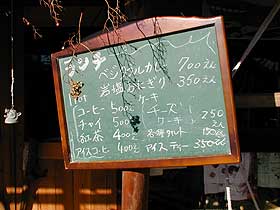 ランチ
ベジタブルカレー 700えん
岩塩おむすび 350えん
コーヒー 500えん ケーキ
チャイ 500えん チーズ ケーキ 250えん
紅茶 400えん
アイスコーヒー 400えん アイスティー 350えん